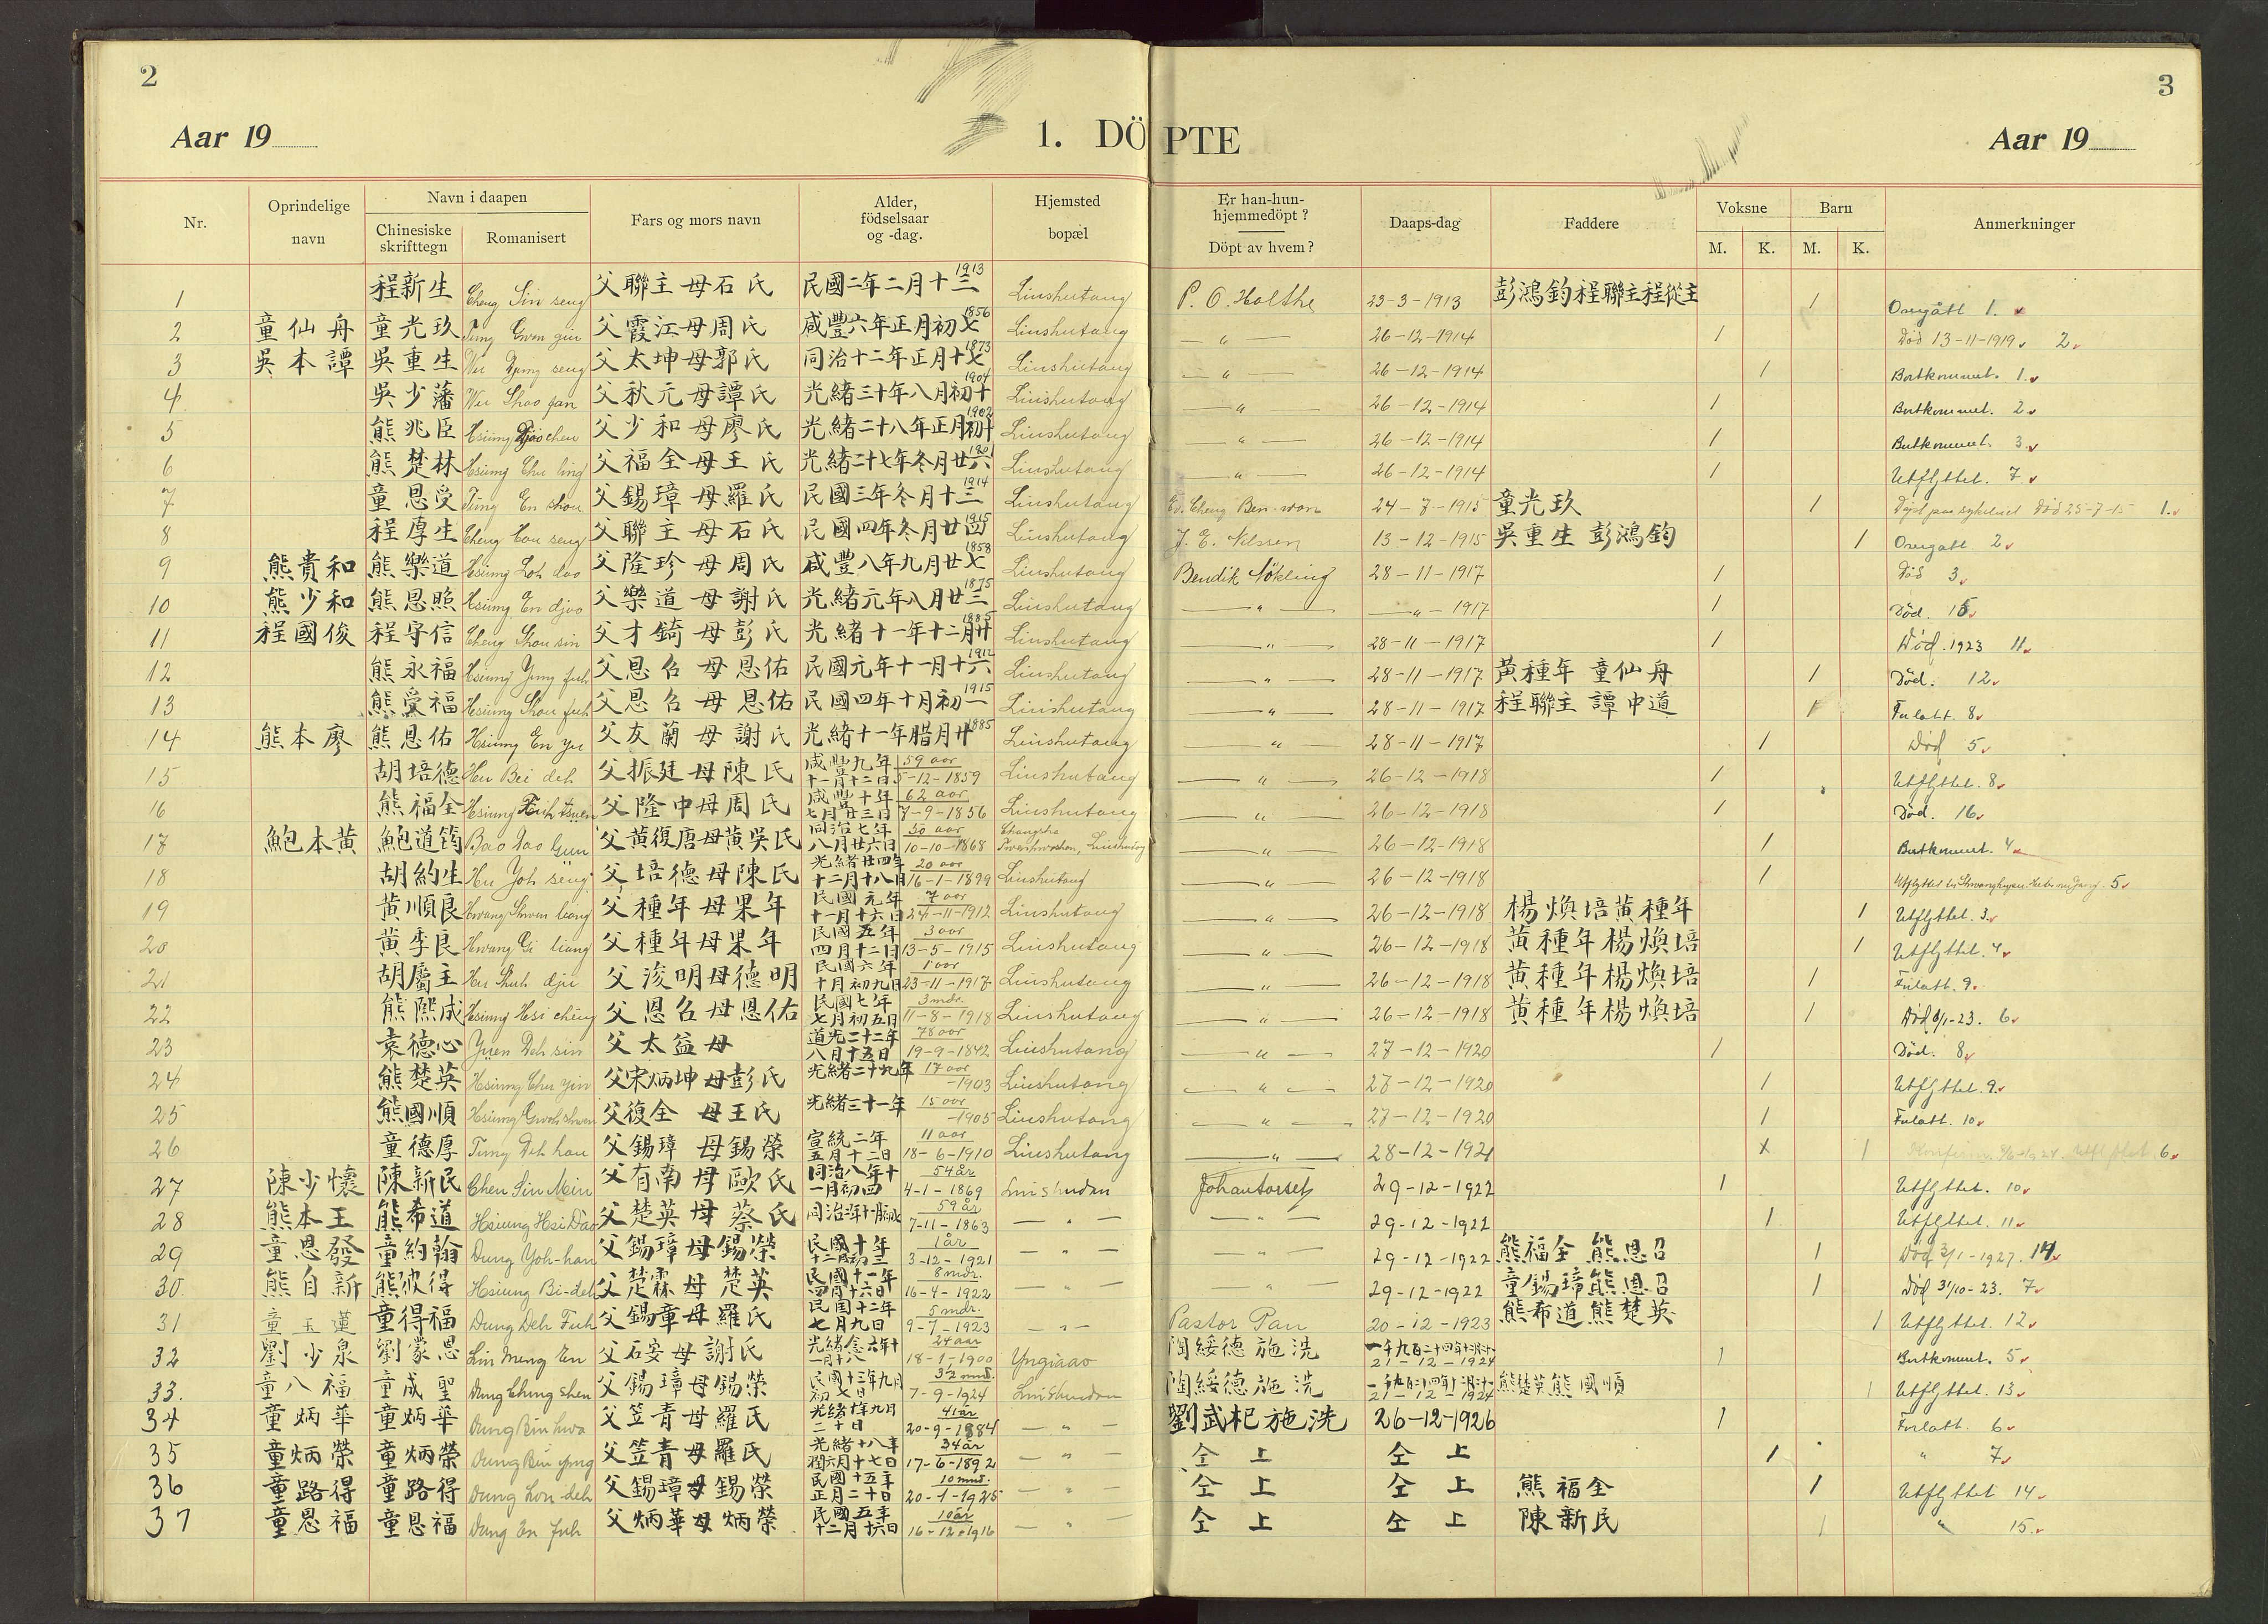 2
3
Aar 19
1. DÖPTE
Aar 19
Nr.
Oprindelige navn
Navn i daapen
Chinesiske skrifttegn
Romanisert
Fars og mors navn
Alder, födselsaar og -dag.
Hjemsted bopæl
Er han-hun-hjemmedöpt?
Döpt av hvem?
Daaps-dag
Faddere
Voksne
M. K.
Barn
M. K.
Anmerkninger
1 程新生 Cheng Sin seng 父聯主母石氏 民國二年二月十三 1913 Linshutang P. O. Holthe 23-3-1913 彭鴻鈞程聯主程從主 1 Overgått 1.
2 童仙舟 童光玖 Tung Gwan giu 父霞江母周氏 咸豐六年正月初七 1856 Linshutang — " — 26-12-1914 1 Död 13-11-1919 2
3 吳本譚 吳重生 Wu seng 父太坤母郭氏 同治十二年正月十七 1873 Linshutang — " — 26-12-1914 1 Bortkommet. 1.
4 吳少藩 Wu Shao fan 父秋元母譚氏 光緒三十年八月初十 1904 Linshutang — " — 26-12-1914 1 Bortkommet. 2
5 熊兆臣 Hsiung Djao chen 父少和母廖氏 光緒二十八年正月初十 1902 Linshutang — " — 26-12-1914 1 Bortkommet. 3
6 熊楚林 Hsiung Chu ling 父福全母王氏 光緒二十七年冬月廿六 1901 Linshutang — " — 26-12-1914 1 Utflyttet. 7
7 童恩受 Tung En shou 父錫璋母羅氏 民國三年冬月十三 1914 Linshutang Ev. Cheng Ben-wan 24-7-1915 童光玖 1 Döpt paa sykeleiet Död 25-7-15 1.
8 程厚生 Cheng Hou seng 父聯主母石氏 民國四年冬月廿四 1915 Linshutang J. E. Nilssen 13-12-1915 吳重生 彭鴻鈞 1 Overgått 2
9 熊貴和 熊樂道 Hsiung Loh dao 父隆珍母周氏 咸豐八年九月廿七 1858 Linshutang Bendik Nökling 28-11-1917 1 Död 3
10 熊少和 熊恩照 Hsiung En djao 父樂道母謝氏 光緒元年八月廿三 1875 Linshutang — " — — " — 1917 1 Död. 15
11 程國俊 程守信 Cheng Shou sin 父才錡母彭氏 光緒十一年十二月廿 1885 Linshutang — " — 28-11-1917 1 Död. 1923 11
12 熊永福 Hsiung Yung fuh 父恩召母恩佑 民國元年十一月十六 1912 Linshutang — " — 28-11-1917 黃種年 童仙舟 1 Död. 12
13 熊受福 Hsiung Shou fuh 父恩召母恩佑 民國四年十月初一 1915 Linshutang — " — 28-11-1917 程聯主 譚中道 1 Forlatt. 8
14 熊本廖 熊恩佑 Hsiung En yu 父友蘭母謝氏 光緒十一年腊月廿 1885 Linshutang — " — 28-11-1917 1 Död 5
15 胡培德 Hu Bei deh 父振廷母陳氏 咸豐九年十一月十二日 59 aar 5-12-1859 Linshutang — " — 26-12-1918 1 Utflyttet. 8
16 熊福全 Hsiung Fuh tsuen 父隆中母周氏 咸豐十年七月廿三日 62 aar 7-9-1856 Linshutang — " — 26-12-1918 1 Död. 16
17 鮑本黃 鮑道筠 Bao Dao Gün 父黃復唐母黃吳氏 同治七年八月廿六日 50 aar 10-10-1868 Changsha Linshutang — " — 26-12-1918 1 Bortkommet. 4
18 胡約生 Hu Yoh seng 父培德母陳氏 光緒廿四年十二月十八日 20 aar 16-1-1899 Linshutang — " — 26-12-1918 1 5
19 黃順良 Hwang Shwen liang 父種年母果年 民國元年十一月十六日 7 aar 24-11-1912 Linshutang — " — 26-12-1918 楊煥培黃種年 1 Utflyttet. 3
20 黃季良 Hwang Gi liang 父種年母果年 民國五年四月十二日 3 aar 13-5-1915 Linshutang — " — 26-12-1918 黃種年楊煥培 1 Utflyttet. 4
21 胡屬主 Hu Shuh dju 父浚明母德明 民國六年十月初九日 1 aar 23-11-1917 Linshutang — " — 26-12-1918 黃種年楊煥培 1 Forlatt. 9
22 熊熙成 Hsiung Hsi cheng 父恩召母恩佑 民國七年七月初五日 3 mdr. 11-8-1918 Linshutang — " — 26-12-1918 黃種年楊煥培 1 Död 6/1-23. 6
23 袁德心 Yuen Deh sin 父太益母 道光二十二年八月十五日 78 aar 19-9-1842 Linshutang — " — 27-12-1920 1 Död. 8
24 熊楚英 Hsiung Chu yin 父宋炳坤母彭氏 光緒二十九年 17 aar -1903 Linshutang — " — 27-12-1920 1 Utflyttet. 9
25 熊國順 Hsiung Gwoh shwen 父復全母王氏 光緒三十一年 15 aar -1905 Linshutang — " — 27-12-1920 1 Forlatt. 10
26 童德厚 Tung Deh hou 父錫璋母錫榮 宣統二年五月十二日 11 aar 18-6-1910 Linshutang — " — 28-12-1921 x 1 Utflyttet 6
27 陳少懷 陳新民 Chen Sin Min 父有南母歐氏 同治八年十一月初四 54 år 4-1-1869 Linshudan Johan Torset 29-12-1922 1 Utflyttet. 10
28 熊本王 熊希道 Hsiung Hsi Dao 父楚英母蔡氏 59 år 7-11-1863 — " — — " — 29-12-1922 1 Utflyttet. 11
29 童恩發 童約翰 Dung Yoh-han 父錫璋母錫榮 民國十年十二月初三 1 år 3-12-1921 — " — — " — 29-12-1922 熊福全 熊恩召 1 Död 3/1-1927. 14
30. 熊自新 熊彼得 Hsiung Bi-deh 父楚霖母楚英 民國十一年四月十六日 8 mdr. 16-4-1922 — " — — " — 29-12-1922 童錫璋熊恩召 1 Död 31/10-23. 7
31 童玉蓮 童得福 Dung Deh Fuh 父錫章母羅氏 民國十二年七月九日 5 mdr. 9-7-1923 — " — Pastor Pan 20-12-1923 熊希道熊楚英 1 Utflyttet. 12
32 劉少泉 劉蒙恩 Liu Meng En 父石安母謝氏 24 aar 18-1-1900 Yngiaao 陶綏德施洗 21-12-1924 1 Bortkommet. 5
33. 童八福 童成聖 Dung Ching shen 父錫璋母錫榮 民國十三年九月初七日 3½ mnd. 7-9-1924 Linshudan 陶綏德施洗 21-12-1924 熊楚英熊國順 1 Utflyttet. 13
34 童炳華 童炳華 Dung Bin hwa 父笠青母羅氏 光緒十年九月二十日 41 år 20-9-1884 — " — 劉武杞施洗 26-12-1926 1 Forlatt. 6
35 童炳榮 童炳榮 Dung Bin yong 父笠青母羅氏 光緒十八年潤六月十七日 34 år 17-6-1892 — " — 仝上 仝上 1 " 7
36 童路得 童路得 Dung Lou-deh 父錫璋母錫榮 民國十五年正月二十日 10 mnd. 20-1-1925 — " — 仝上 仝上 熊福全 1 Utflyttet 14
37 童恩福 童恩福 Dung En fuh 父炳華母炳榮 民國五年十二月十六日 10 år 16-12-1916 — " — 仝上 仝上 陳新民 1 " 15